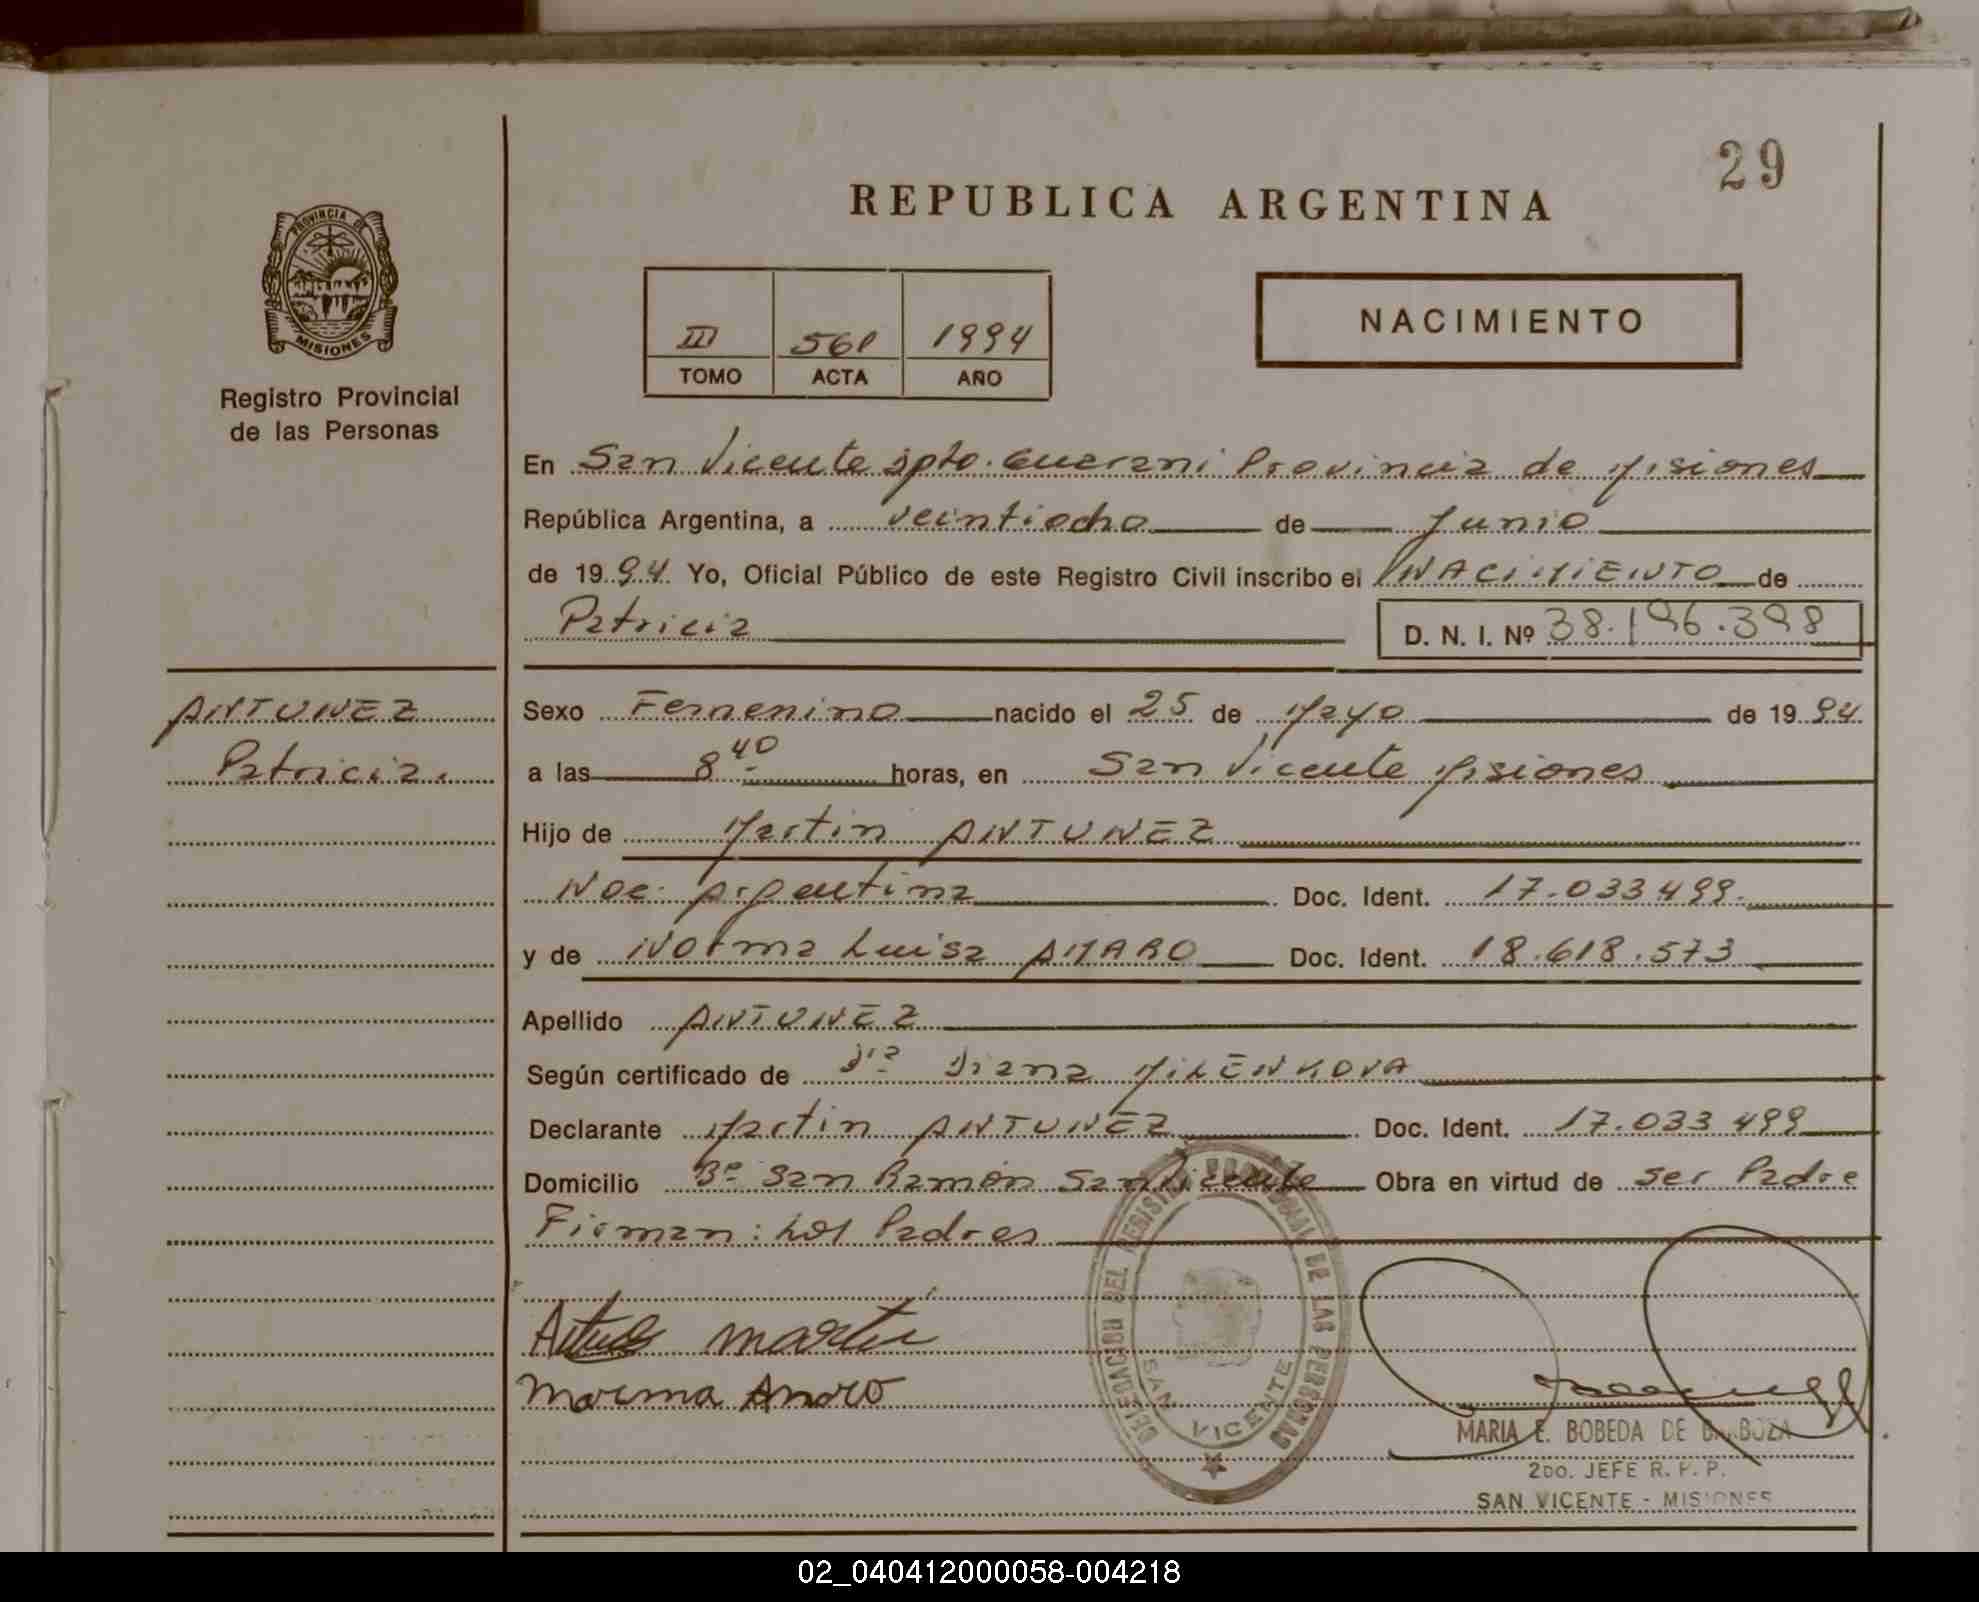 29
REPUBLICA ARGENTINA
PROVINCIA DE
MISIONES
Registro Provincial
de las Personas
III 561 1994
TOMO ACTA AÑO
NACIMIENTO
En San Vicente Dpto. Guarani Provincia de Misiones
República Argentina, a veintiocho de Junio
de 1994 Yo, Oficial Público de este Registro Civil inscribo el NACIMIENTO de
Patricia D. N. I. Nº 38.196.398
ANTUNEZ
Patricia.
Sexo Femenino nacido el 25 de Mayo de 1994
a las 8 40 horas, en San Vicente Misiones
Hijo de Martin ANTUNEZ
Nac. Argentina Doc. Ident. 17.033.499.
y de Norma Luisa AMARO Doc. Ident. 18.618.573
Apellido ANTUNEZ
Según certificado de Dra Diana MILENKOVA
Declarante Martin ANTUNEZ Doc. Ident. 17.033.499
Domicilio Bº San Ramón San Vicente Obra en virtud de ser Padre
Firman: Los Padres
martin
DELEGACION DEL REGISTRO PROVINCIAL DE LAS PERSONAS
SAN VICENTE
MARIA E. BOBEDA DE BARBOZA
2DO. JEFE R. P. P.
SAN VICENTE - MISIONES
02_040412000058-004218